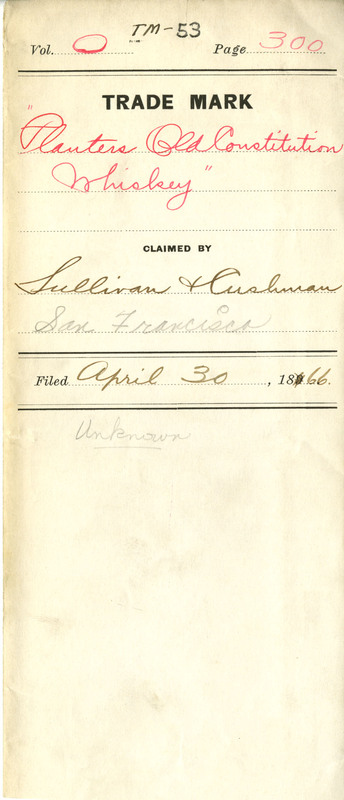 TM-53
Vol. O Page 300
TRADE MARK
"Planters Old Constitution
Whiskey"
CLAIMED BY
Sullivan & Cushman
San Francisco
Filed April 30, 1866.
Unknown